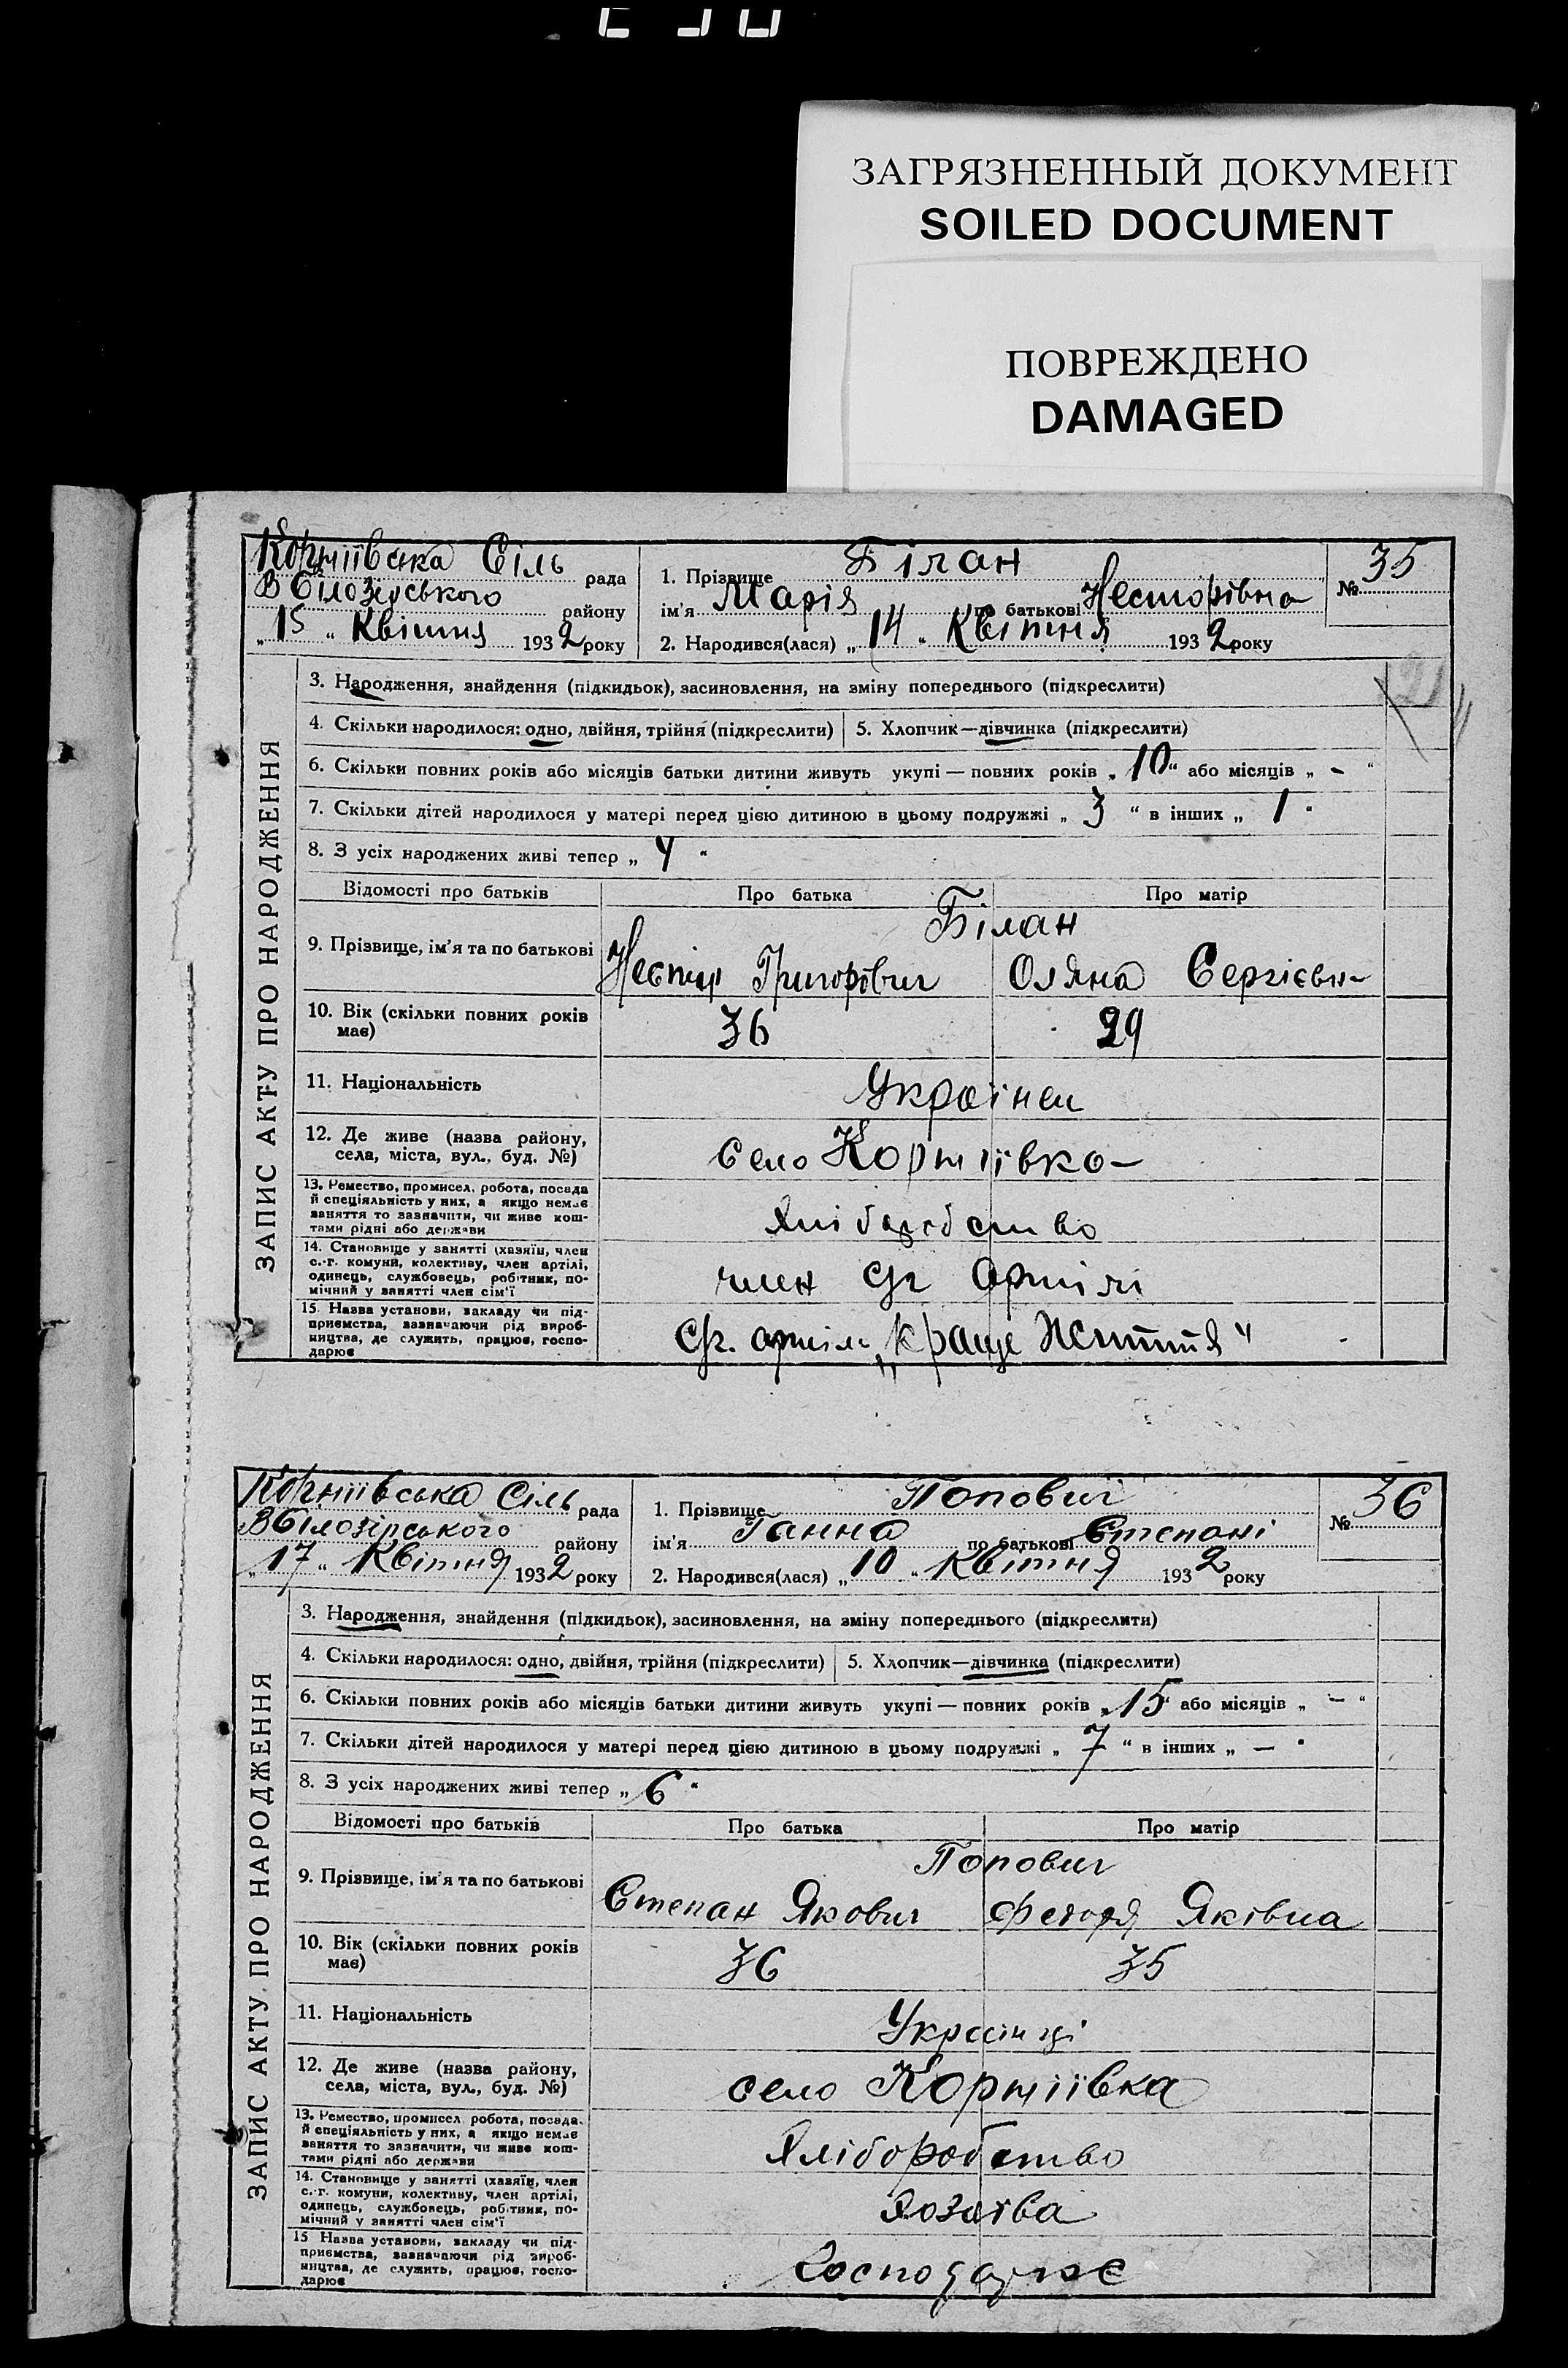 ЗАГРЯЗНЕННЫЙ ДОКУМЕНТ
SOILED DOCUMENT
ПОВРЕЖДЕНО
DAMAGED
Корніївська Сіль рада
В Білозірського району
„15“ Квітня 1932 року
1. Прізвище Білан
ім'я Марія по батькові Несторівна
2. Народився(лася) „14“ Квітня 1932 року
№ 35
ЗАПИС АКТУ ПРО НАРОДЖЕННЯ
3. Народження, знайдення (підкидьок), засиновлення, на зміну попереднього (підкреслити)
4. Скільки народилося: одно, двійня, трійня (підкреслити) 5. Хлопчик—дівчинка (підкреслити)
6. Скільки повних років або місяців батьки дитини живуть укупі — повних років „10“ або місяців „-“
7. Скільки дітей народилося у матері перед цією дитиною в цьому подружжі „3“ в інших „1“
8. З усіх народжених живі тепер „4“
Відомості про батьків Про батька Про матір
Білан
9. Прізвище, ім'я та по батькові Нестір Григорович Оляна Сергієвн-
10. Вік (скільки повних років має) 36 29
11. Національність Українси
12. Де живе (назва району, села, міста, вул., буд. №) Село Кортіївко-
13. Ремество, промисел, робота, посада
й спеціяльність у них, а якщо немає
заняття то зазначити, чи живе кош-
тами рідні або держави
Хліборобство
14. Становище у занятті (хазяїн, член
с.-г. комуни, колективу, член артілі,
одинець, службовець, робітник, по-
мічний у занятті член сім'ї
член сг Артілі
15. Назва установи, закладу чи під-
приємства, зазначаючи рід вироб-
ництва, де служить, працює, госпо-
дарює
Сг. артіль „Краще Життя"
Корніївська Сіль рада
В Білозірського району
„17“ Квітня 1932 року
1. Прізвище Попович
ім'я Ганна по батькові Степані
2. Народився(лася) „10“ Квітня 1932 року
№ 36
ЗАПИС АКТУ ПРО НАРОДЖЕННЯ
3. Народження, знайдення (підкидьок), засиновлення, на зміну попереднього (підкреслити)
4. Скільки народилося: одно, двійня, трійня (підкреслити) 5. Хлопчик—дівчинка (підкреслити)
6. Скільки повних років або місяців батьки дитини живуть укупі — повних років „15“ або місяців „-“
7. Скільки дітей народилося у матері перед цією дитиною в цьому подружжі „7“ в інших „—“
8. З усіх народжених живі тепер „6“
Відомості про батьків Про батька Про матір
Попович
9. Прізвище, ім'я та по батькові Степан Якович Федора Яківна
10. Вік (скільки повних років має) 36 35
11. Національність Українці
12. Де живе (назва району, села, міста, вул., буд. №) село Кортіївка
13. Ремество, промисел, робота, посада
й спеціяльність у них, а якщо немає
заняття то зазначити, чи живе кош-
тами рідні або держави
Хліборобство
14. Становище у занятті (хазяїн, член
с.-г. комуни, колективу, член артілі,
одинець, службовець, робітник, по-
мічний у занятті член сім'ї
15. Назва установи, закладу чи під-
приємства, зазначаючи рід вироб-
ництва, де служить, працює, госпо-
дарює
Господарює